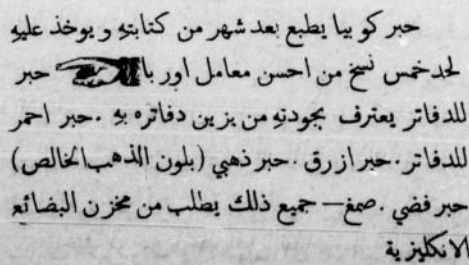 حبر كوبيا يطبع بعد شهر من كتابتهِ ويوخذ عليهِ
لحد خمس نسخ من احسن معامل اوربا حبر
للدفاتر يعترف بجودتهِ من يزين دفاتره بهِ . حبر احمر
للدفاتر . حبر ازرق . حبر ذهبي (بلون الذهب الخالص)
حبر فضي . صمغ — جميع ذلك يطلب من مخزن البضائع
الانكليزية